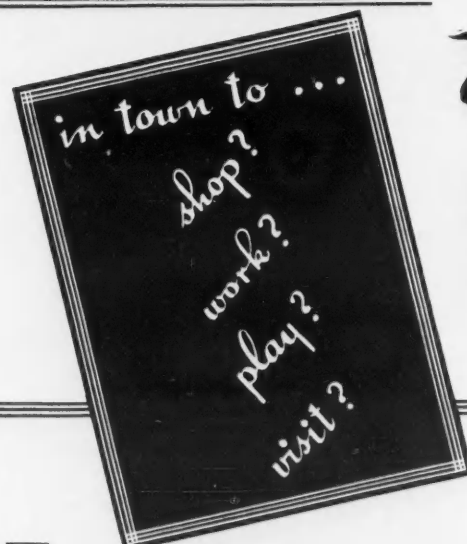 in town to ...
shop?
work?
play?
visit?